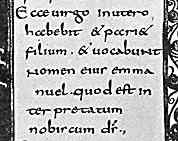 Ecce uirgo inutero,
habebit & pari&
filium . & uocabunt
Nomen eius emma
nuel . quod est in
ter pretatum
nobiscum ds̄.,